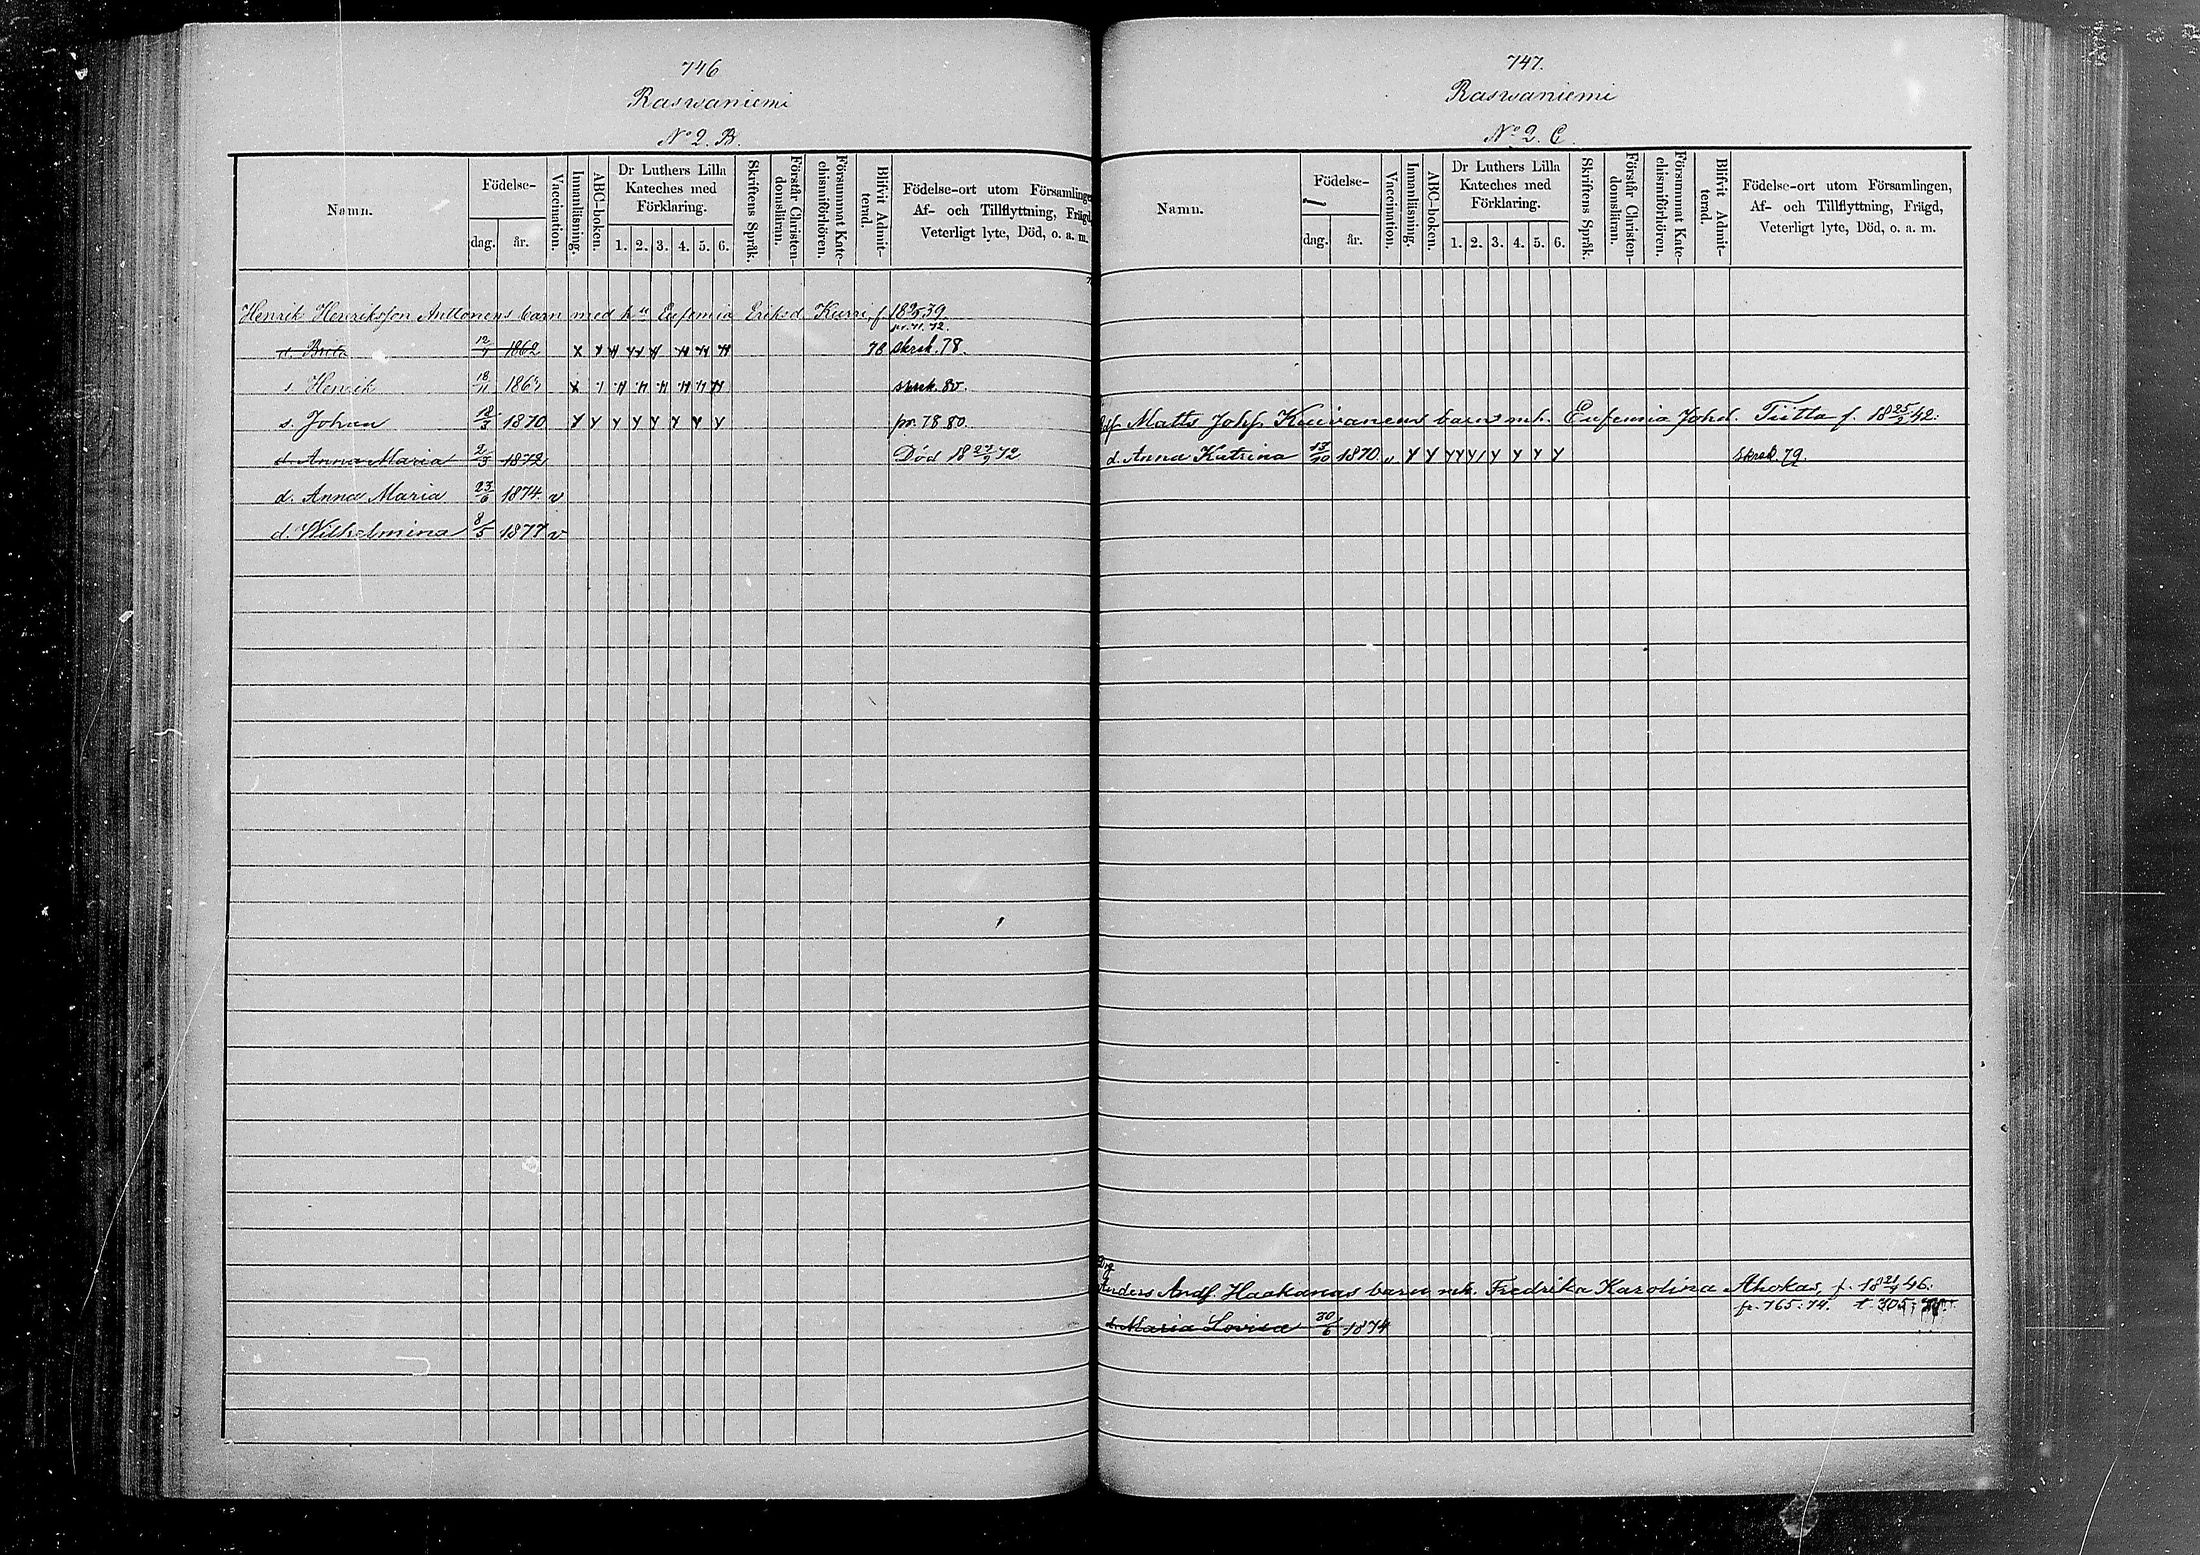 746
Raswaniemi
No 2. B.
Namn.
Födelse-
dag.
år.
Vaccination.
Innanläsning.
ABC-boken.
Dr Luthers Lilla
Kateches med
Förklaring.
1. 2. 3. 4. 5. 6.
Skriftens Språk.
Förstår Christen-
domsläran.
Försummat Kate-
chismiförhören.
Blifvit Admit-
terad.
Födelse-ort utom Församlingen
Af- och Tillflyttning, Frägd,
Veterligt lyte, Död, o. a. m.
Henrik Henriksson Anttonens barn med hu Eufemia Eriksd Kurri, f
12/1 1862 78 skrsk. 78.
s. Henrik 18/11 80.
s. Johan 1870 pr. 78 80.
d. Anna Maria 2/3 1872 Död 72
d. Anna Maria 23/6 1874 v
d. Wilhelmina 8/5 1877 v
747.
Raswaniemi
No 2. C.
Namn.
Födelse-
dag.
år.
Vaccination.
Innanläsning.
ABC-boken.
Dr Luthers Lilla
Kateches med
Förklaring.
1. 2. 3. 4. 5. 6.
Skriftens Språk.
Förstår Christen-
domsläran.
Försummat Kate-
chismiförhören.
Blifvit Admit-
terad.
Födelse-ort utom Församlingen,
Af- och Tillflyttning, Frägd,
Veterligt lyte, Död, o. a. m.
Matts Johs. barn mh. Eufemia Johd. Tiitta f. 18 25/2 42.
d. Anna Katrina 13/10 1870 v skrsk. 79.
Anders Andf. Haakanas barn mh. Fredrika Karolina Ahokas, f. 18 21/4 46.
fr. 765: 74. t. 305:
d. Maria Lovisa 30/6 1874